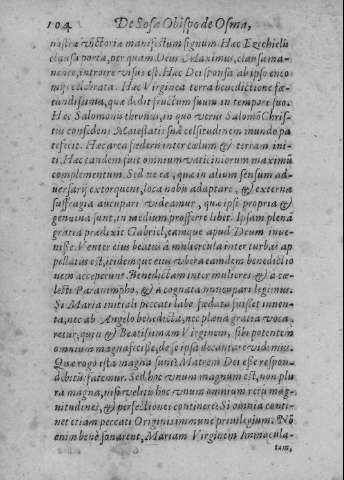 104 De Sosa Obispo de Osma,
nostræ victoriæ manifestum signum. Hæc Ezechielis
clausa porta, per quam Deus Maximus, clausa ma-
nente, introire visus est. Hæc Dei sponsa ab ipso enco
mijs celebrata. Hæc Virginea terra benedictione fæ-
cundissima, quæ dedit fructum suum in tempore suo.
Hæc Salomonis thronus, in quo verus Salomõ Chris-
tus consedens Maiestatis suæ celsitudinem mundo pa
tefecit. Hæc arca fæderis inter cælum & terram ini-
ti. Hæc tandem fuit omnium vaticiniorum maximũ
complementum. Sed ne ea, quæ in alium sensum ad-
uersarij extorquent, loca nobis adaptare, & externa
suffragia aucupari videamur, quæ ipsi propria &
genuina sunt, in medium profferre libet. Ipsam plenã
gratia prædixit Gabriel, eamque apud Deum inue-
nisse. Venter eius beatus à muliercula inter turbas ap
pellatus est, itidemque eius vbera eamdem benedictio
nem acceperunt. Benedictam inter mulieres & a cæ-
lesti Paranimpho, & a cognata nuncupari legimus.
Si Maria initiali peccati labe fædata fuisset inuen-
ta, nec ab Angelo benedicta, nec plena gratia voca
retur, quin & Beatissimam Virginem, sibi potentem
omnium magna fecisse, de se ipsa decantare vidimus.
Quæ rogo ista magna sunt? Matrem Dei esse respon
debitis fatemur. Sed hoc vnum magnum est, non plu
ra magna, nisi velitis hoc vnum omnium rerũ mag-
nitudines, & perfectiones continere. Si omnia conti-
net etiam peccati Originis immune priuilegium. Nõ
enim benè sonarent, Mariam Virginem Immacula-
tam,